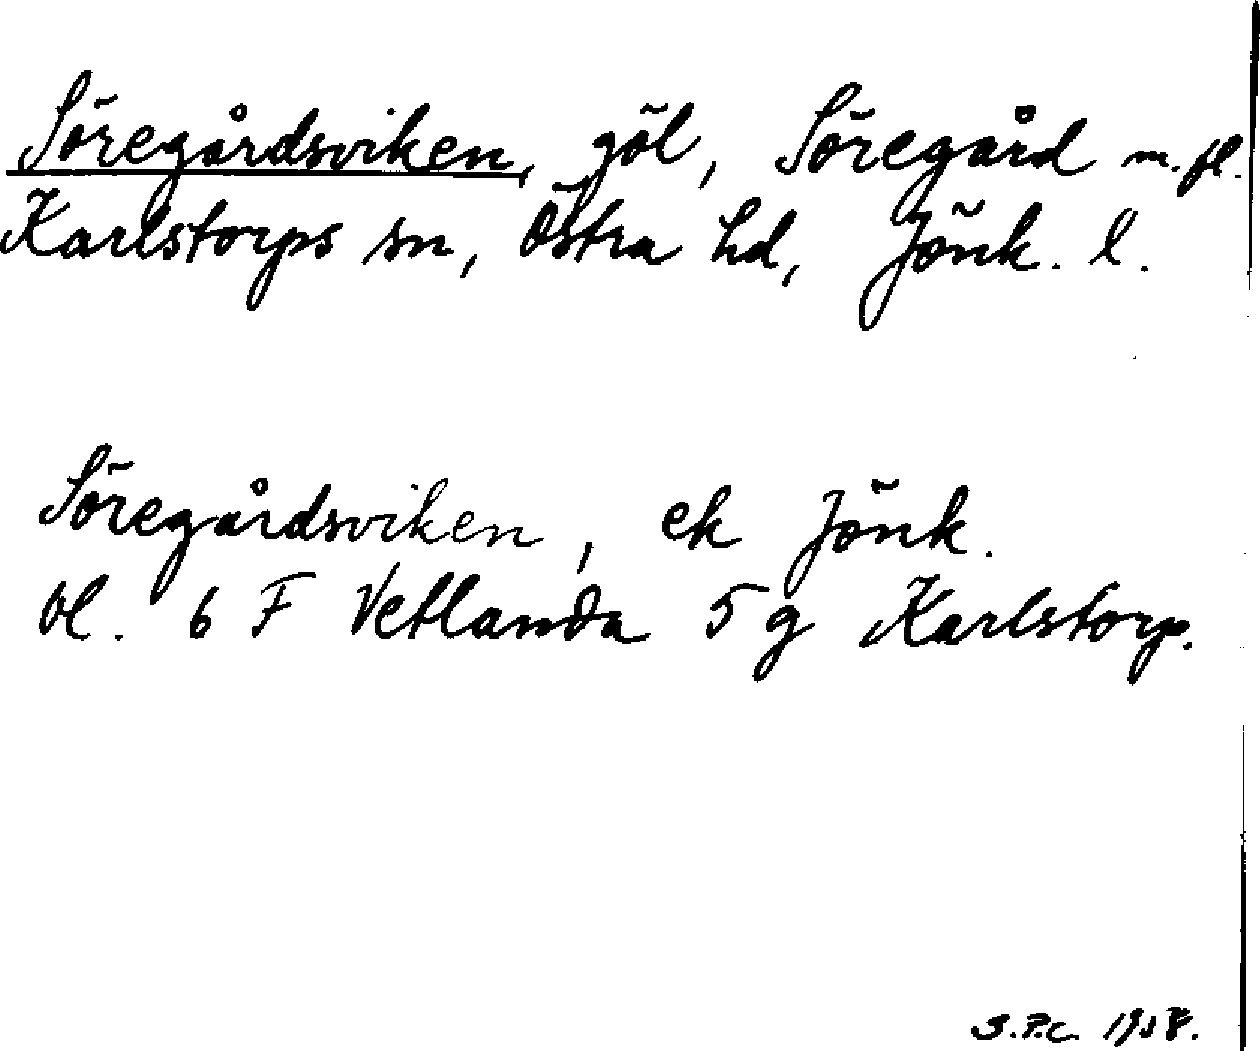 Söregårdsviken, göl, Söregård m.fl.
Karlstorps sn, Östra hd, Jönk. l.
Söregårdsviken, ek Jönk.
bl. 6 F Vetlanda 5 g Karlstorp.